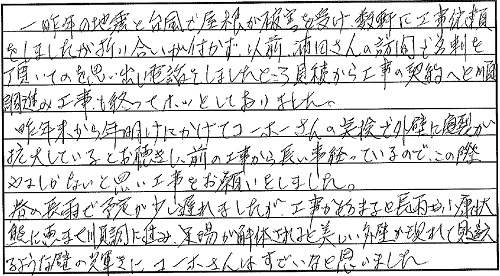 一昨年の地震と台風で屋根が被害を受け、数軒に工事依頼
をしましたが折り合いが付かず、以前 さんの訪問で名刺を
頂いてのを思い出し電話をしましたところ見積から工事の契約へと順
調進み工事も終ってホッとしておりました。
昨年末から年明けにかけてコーホーさんの点検で外壁に亀裂が
拡大しているとお聴きし、前の工事から長い事経っているので、この際
やるしかないと思い工事をお願いをしました。
春の長雨で予定が少し遅れましたが、工事が始まると長雨も 康状
態に恵まれ順調に進み、足場が解体されると美しい外壁が現れて見違え
るような壁の輝きに、コーホーさんはすごいなと思いました